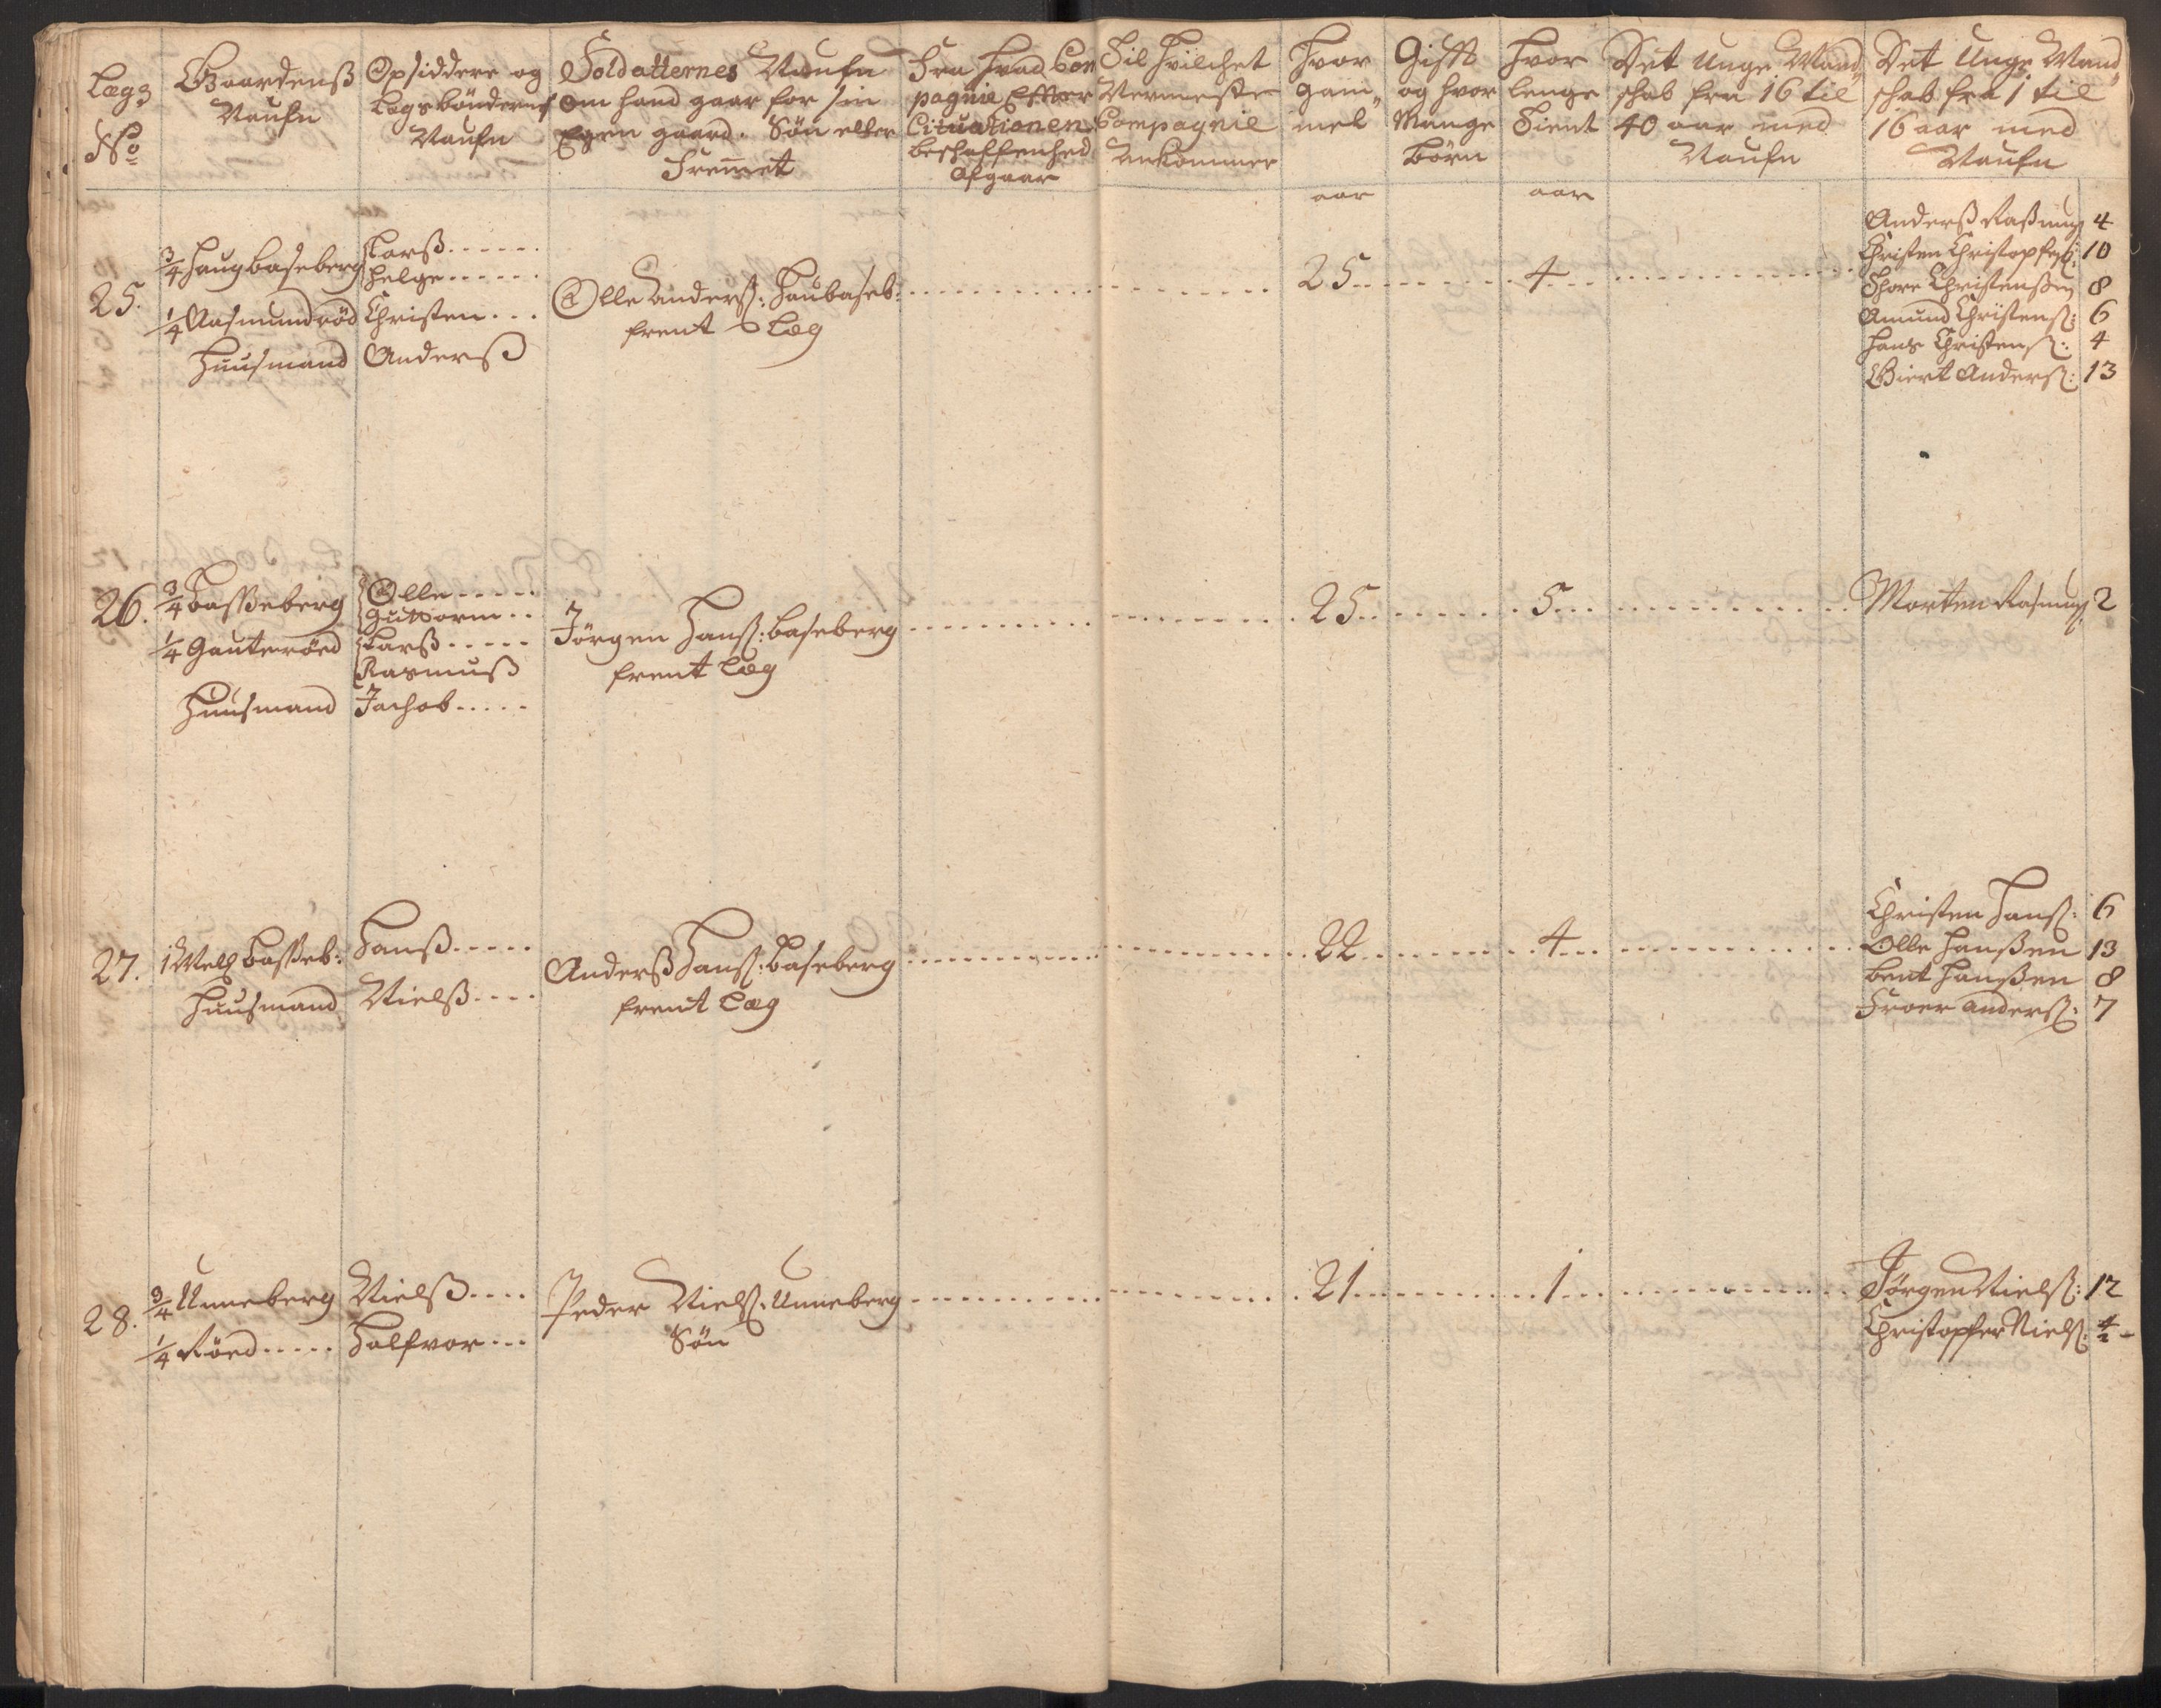 Lægs
No
Gaardenß
Naufn
Opsiddere og
Lægsbönderneß
Naufn
Soldatternes Naufn
Om hand gaar for sin
Egen gaard. Sön eller
Fremet
Fra hvad Com
pagnie Effter
Cituationen
beschaffenhed
Afgaar
Til hvilchet
Nermeste
Compagnie
Ankommer
Hvor
gam„
mel
Gifft
og hvor
Mange
börn
Hvor
lenge
Tient
Det Unge Mand„
schab fra 16 til
40 aar med
Naufn
Det Unge Mand„
schab fra 1 til
16 aar med
Naufn
aar
aar
25.
3/4 Haugbaseberg
1/4 Aasmundröd
Huusmand
Larß
Helge
Christen
Anderß
Olle Anderß: Haubaseb:
fremt Læg
25
4
Anderß Raßmuß 4
Christen Christopherß: 10
Thore Christenßen 8
Amund Christenß: 6
Hans Christenß: 4
Giert Anderß: 13
26.
3/4 Basseberg
1/4 Gauteröed
Huusmand
Olle
Guttorm
Larß
Rasmuß
Jachob
Jörgen Hanß: Baseberg
fremt Læg
25
5
Morten Rasmuß: 2
27.
1 Mels Basseb:
Huusmand
Hanß
Nielß
Anderß Hanß: Baseberg
fremt Læg
22
4
Christen Hanß: 6
Olle Hanßen 13
Bent Hanßen 8
Iver Anderß: 7
28.
3/4 Unneberg
1/4 Röed
Nielß
Halfvor
Peder Nielß: Unneberg
Sön
21
1
Jörgen Nielß: 12
Christopher Nielß: